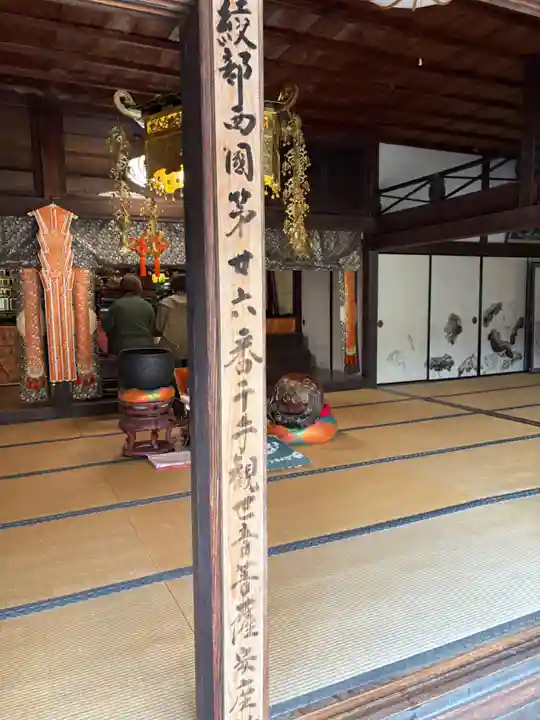 綾部西國第廿六番千手観世音菩薩安座